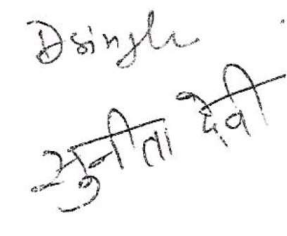 Dsingh
सुनीता देवी